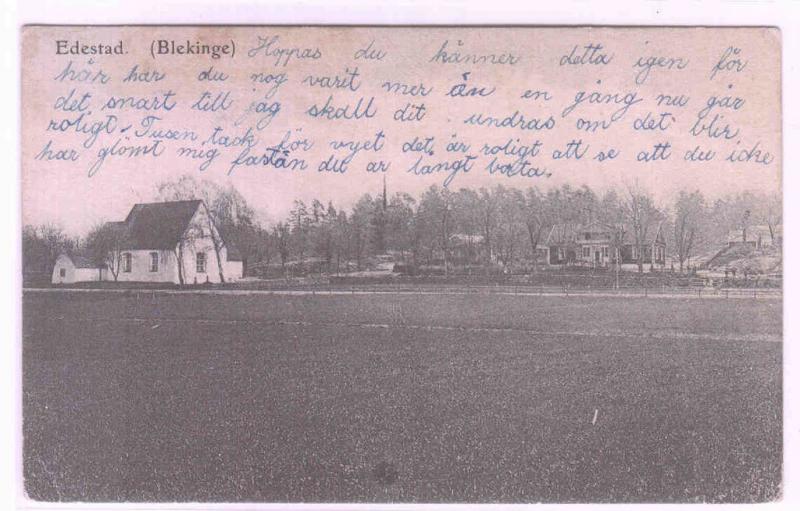 Edestad. (Blekinge) Hoppas du känner detta igen för
här har du nog varit mer än en gång nu går
det snart till jag skall dit. undras om det blir
roligt. Tusen tack för vyet det är roligt att se att du icke
har glömt mig fastän du är långt borta.